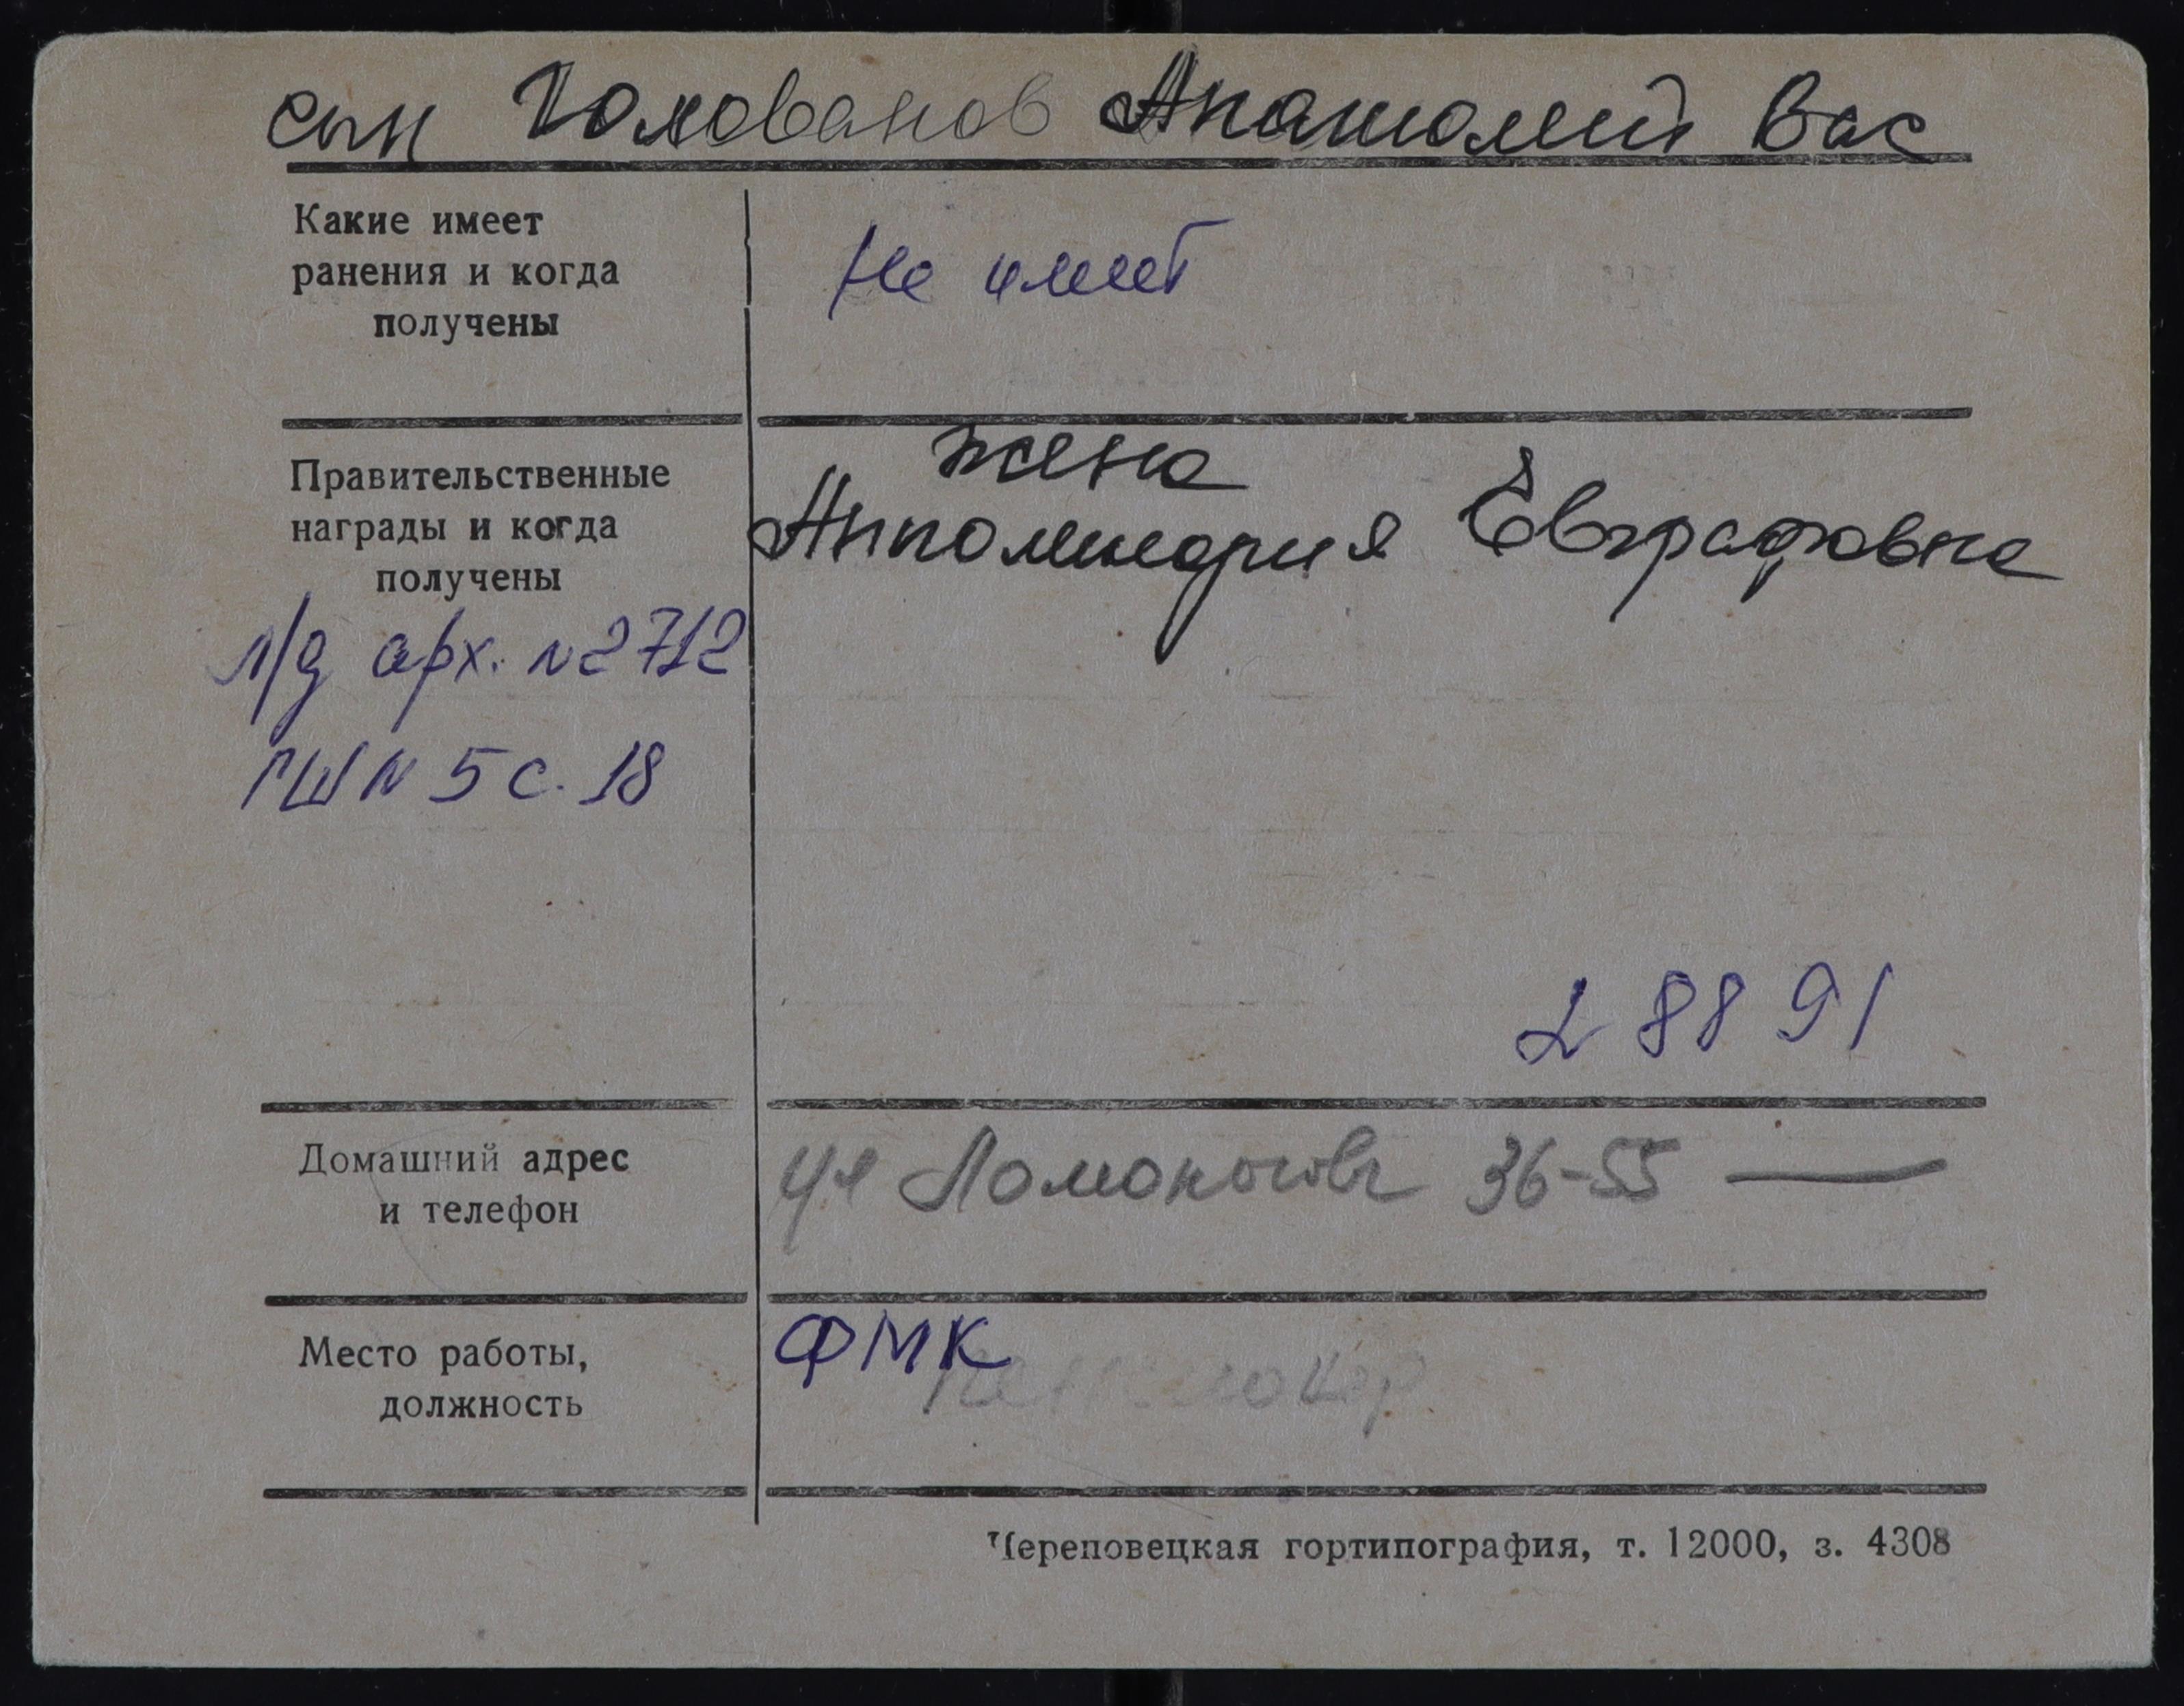 сын Голованов Анатолий Вас
Какие имеет
ранения и когда
получены
Не имеет
Правительственные
награды и когда
получены
жена
Апполинария Евграфовна
л/д арх. №2712
ГШ № 5 с. 18
2 88 91
Домашний адрес
и телефон
ул Ломоносова 36-55 —
Место работы,
должность
ФМК
Череповецкая гортипография, т. 12000, з. 4308